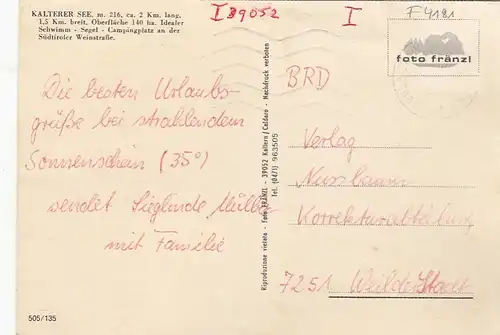 KALTERER SEE, m. 216, ca. 2 Km. lang,
1,5 Km. breit, Oberfläche 140 ha. Idealer
Schwimm - Segel - Campingplatz an der
Südtiroler Weinstraße.
I 39052
I
F4181
foto fränzl
BRD
Die besten Urlaubs-
grüße bei strahlendem
Sonnenschein (35°)
sendet Sieglinde Müller
mit Familie
Riproduzione vietata - Foto FRÄNZL - 39052 Kaltern/Caldaro - Nachdruck verboten
Tel. (0471) 963505
Verlag
Nussbaum
Korrekturabteilung
7251 Weil der Stadt
505/135